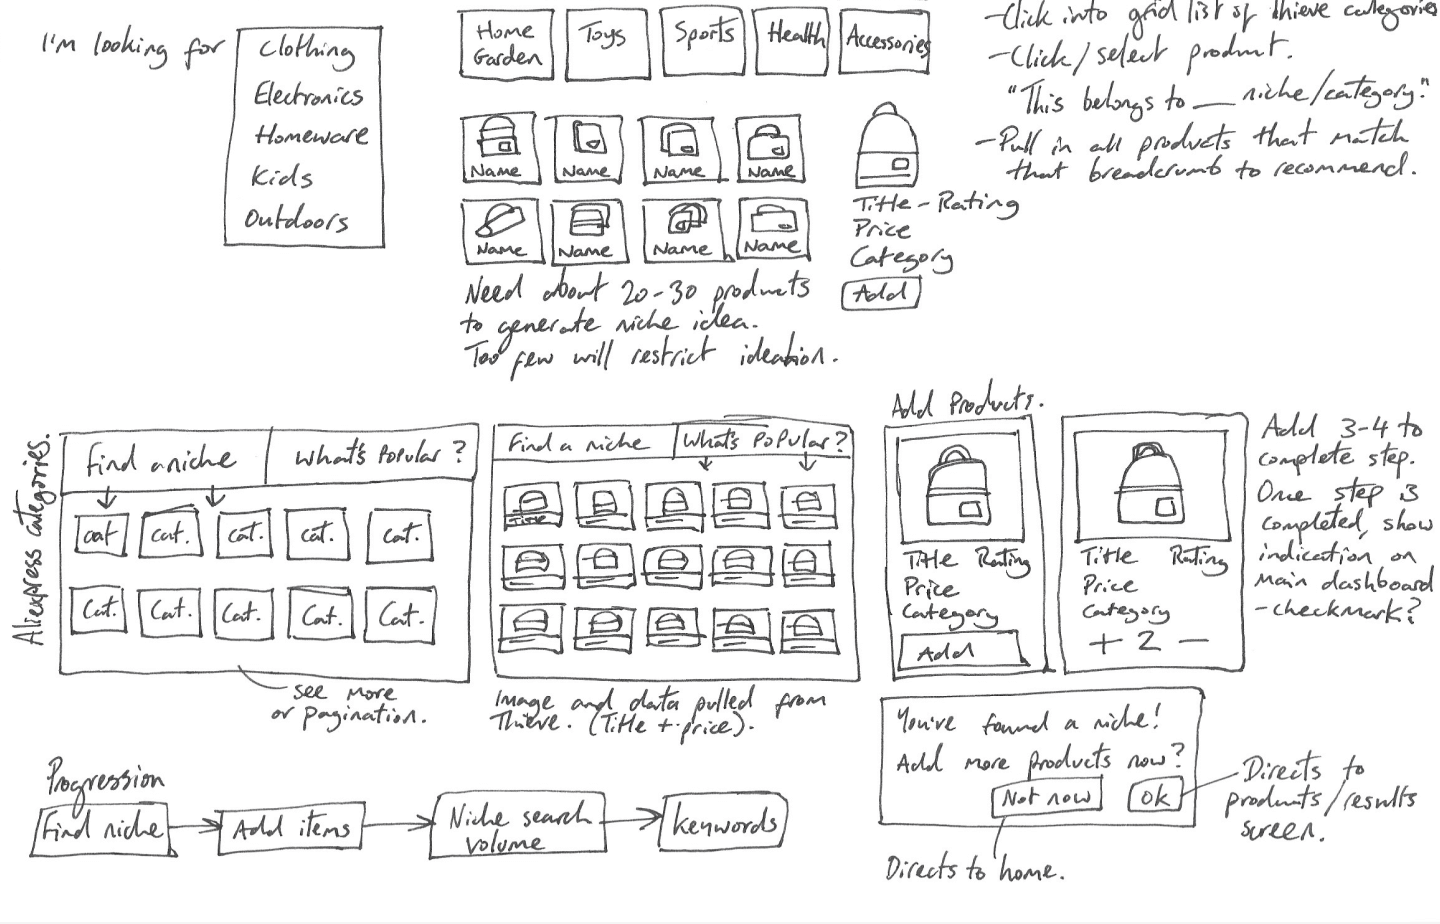 I'm looking for
Clothing
Electronics
Homeware
Kids
Outdoors
Home
Garden
Toys
Sports
Health
Accessories
Name
Name
Name
Name
Name
Name
Name
Name
Need about 20-30 products
to generate niche idea.
Too few will restrict ideation.
Title - Rating
Price
Category
Add
- Click into grid list of thieve categories
- Click/select product.
"This belongs to ___ niche/category."
- Pull in all products that match
that breadcrumb to recommend.
Aliexpress categories.
Find a niche
What's Popular?
cat
cat.
cat.
cat.
cat.
Cat.
Cat.
Cat.
Cat.
Cat.
see more
or pagination.
Find a niche
What's Popular?
Title
Image and data pulled from
Thieve. (Title + price).
Add Products.
Title Rating
Price
Category
Add
Title Rating
Price
Category
+ 2 -
Add 3-4 to
complete step.
Once step is
completed, show
indication on
main dashboard
- checkmark?
You've found a niche!
Add more products now?
Not now
Ok
Directs to
products/results
screen.
Directs to home.
Progression
Find niche
Add items
Niche search
volume
Keywords